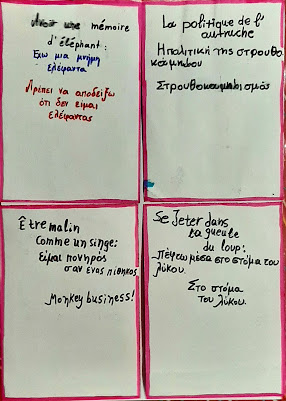 Avoir une mémoire
d'éléphant:
Έχω μια μνήμη
ελέφαντα
Πρέπει να αποδείξω
ότι δεν είμαι
ελέφαντας
La politique de l'
autruche
Η πολιτική της στρουθο
καμήλου
Στρουθοκαμηλισμός
Être malin
comme un singe:
Είμαι πονηρός
σαν ένας πίθηκος
Monkey business!
Se jeter dans
la gueule
du loup:
Πέφτω μέσα στο στόμα του
λύκου.
Στο στόμα
του λύκου.